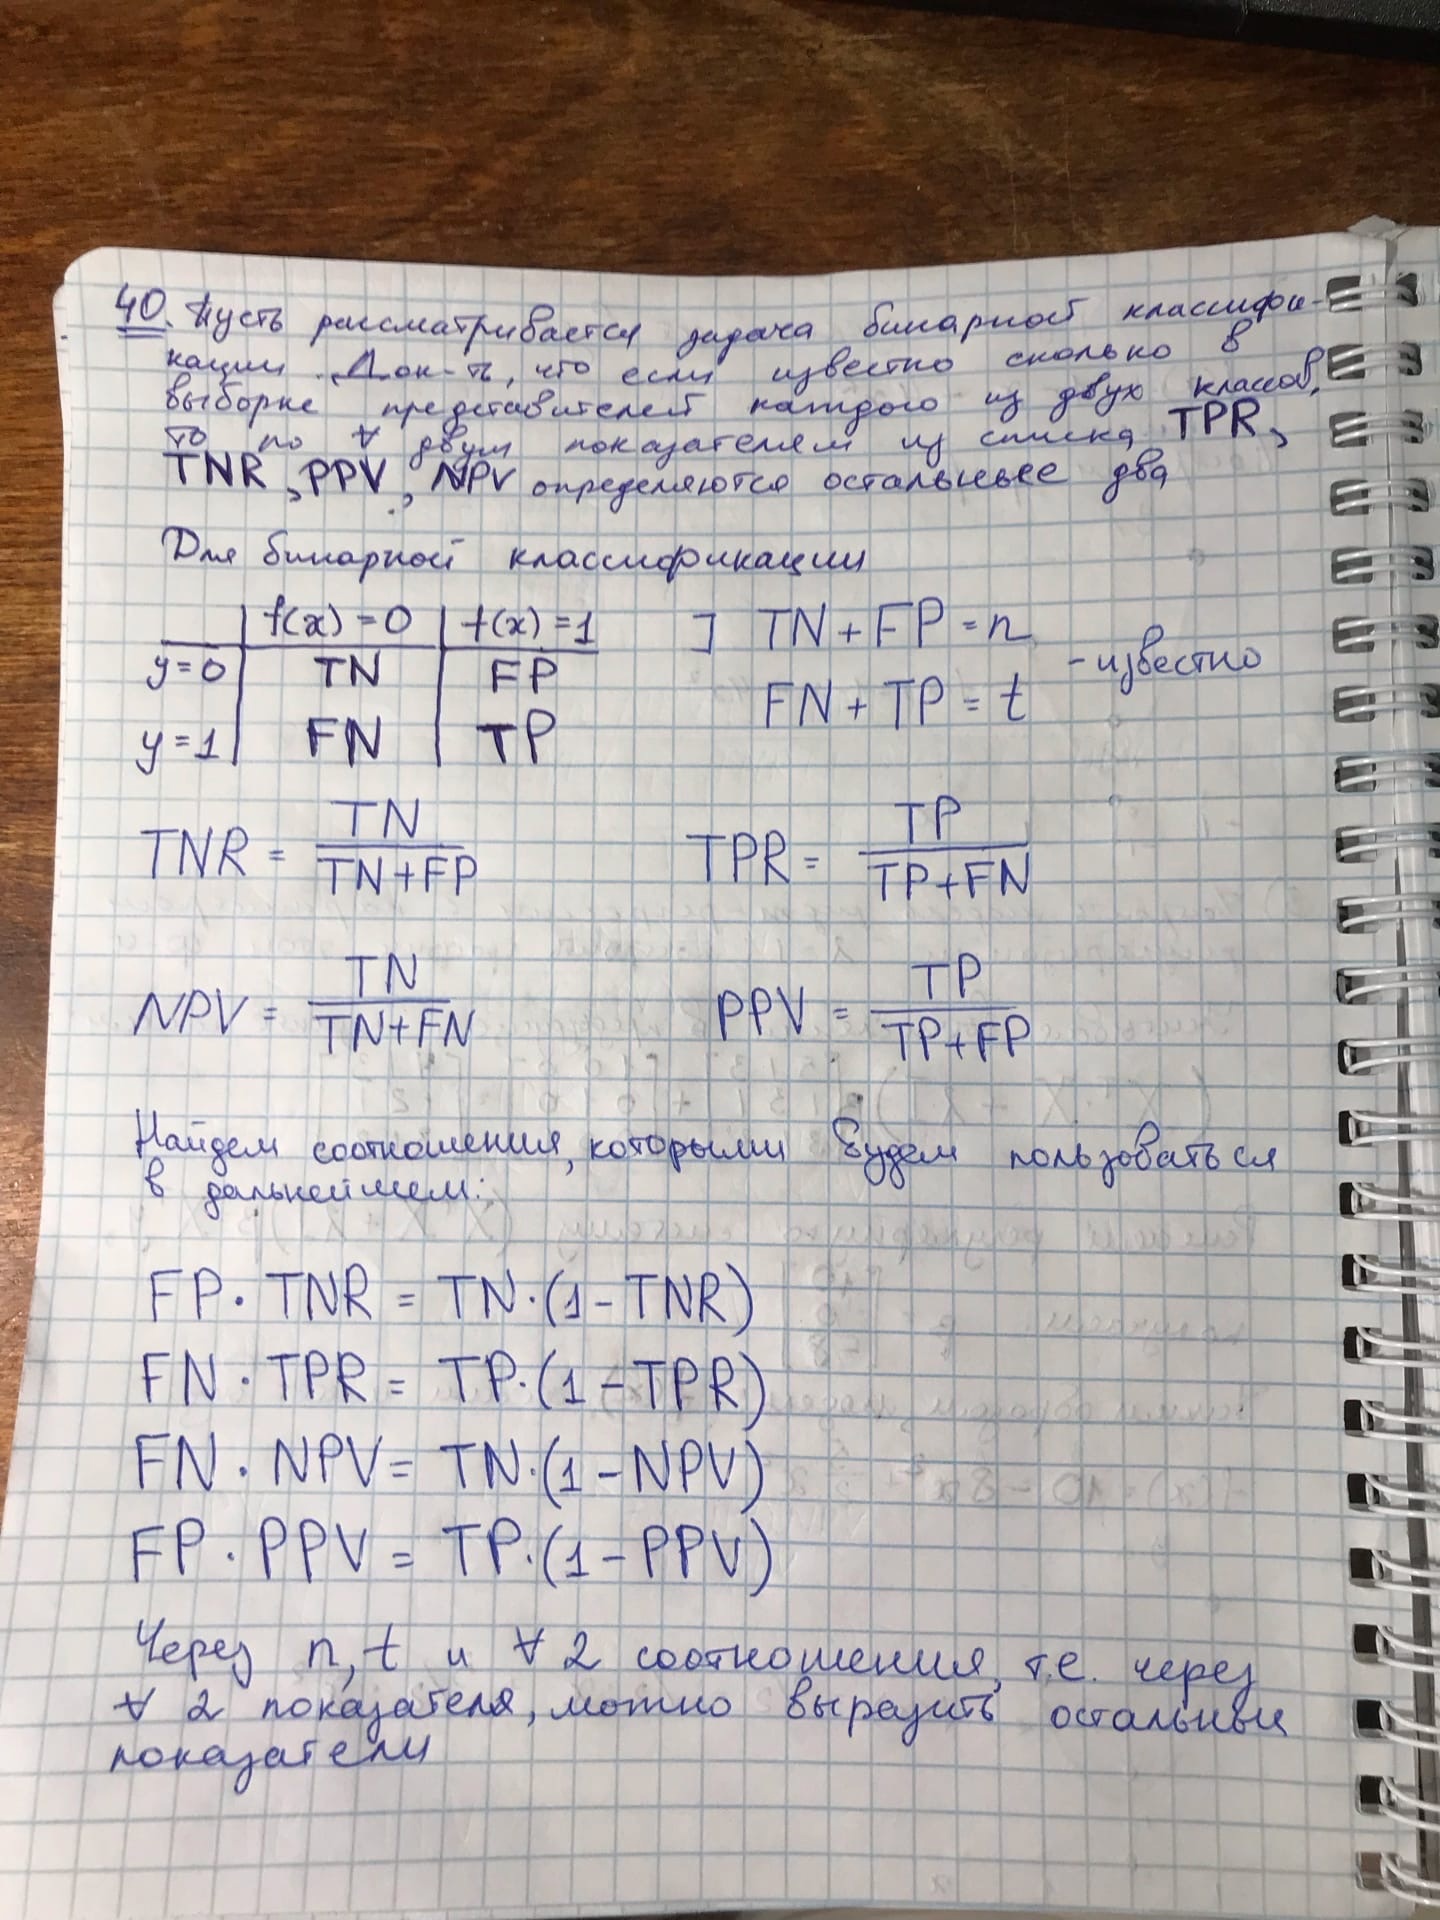 40. Пусть рассматривается задача бинарной классифи-
кации. Док-ть, что если известно сколько в
выборке представителей каждого из двух классов,
то по ∀ двум показателям из списка TPR,
TNR, PPV, NPV определяются остальные два
Для бинарной классификации
f(x)=0 f(x)=1 ] TN+FP=n
y=0 TN FP - известно
FN+TP=t
y=1 FN TP
TNR = TN/(TN+FP) TPR = TP/(TP+FN)
NPV = TN/(TN+FN) PPV = TP/(TP+FP)
Найдем соотношения, которыми будем пользоваться
в дальнейшем:
FP · TNR = TN·(1-TNR)
FN · TPR = TP·(1-TPR)
FN · NPV = TN·(1-NPV)
FP · PPV = TP·(1-PPV)
Через n, t и ∀ 2 соотношения, т.е. через
∀ 2 показателя, можно выразить остальные
показатели